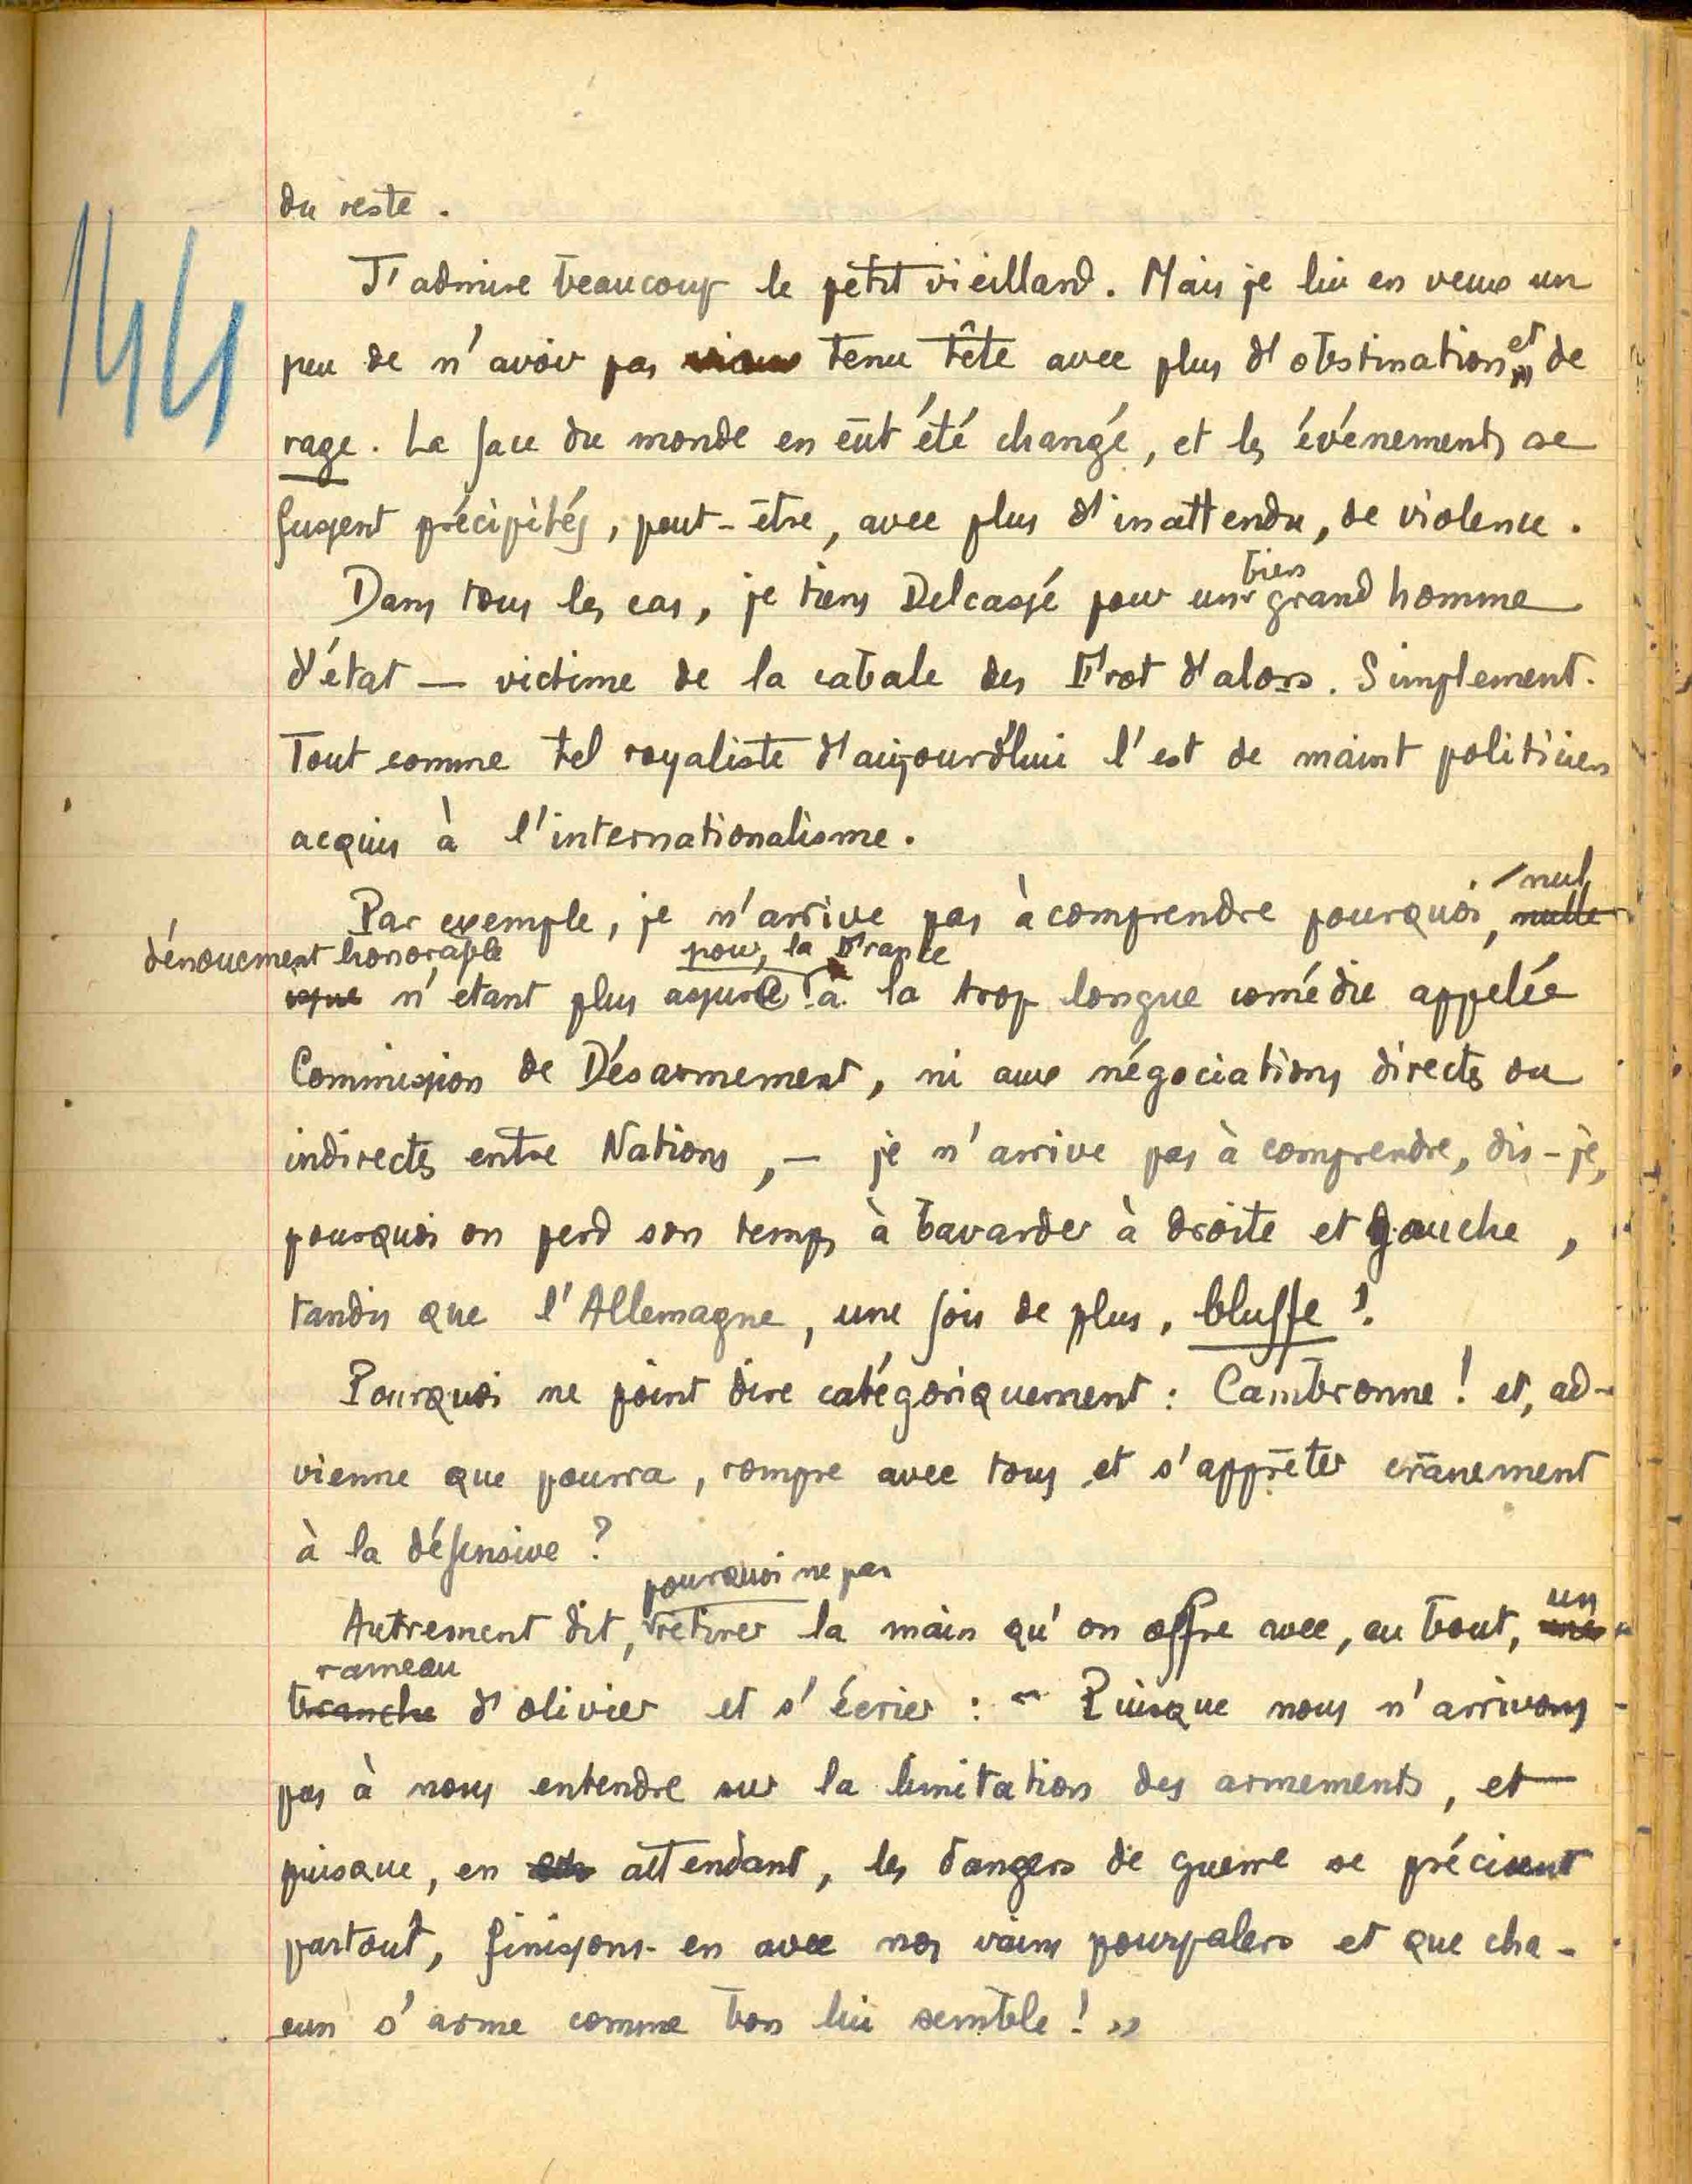 144
du reste.
J'admire beaucoup le petit vieillard. Mais je lui en veux un
peu de n'avoir pas tenu tête avec plus d'obstination et de
rage. La face du monde en eût été changé, et les événements se
fussent précipités, peut-être, avec plus d'inattendu, de violence.
Dans tous les cas, je tiens Delcassé pour un bien grand homme
d'état — victime de la cabale des Frot d'alors. Simplement.
Tout comme tel royaliste d'aujourd'hui l'est de maint politicien
acquis à l'internationalisme.
Par exemple, je n'arrive pas à comprendre pourquoi, nulle nul
dénouement honorable pour la France
n'étant plus assuré à la trop longue comédie appelée
Commission de Désarmement, ni aux négociations directes ou
indirectes entre Nations, — je n'arrive pas à comprendre, dis-je,
pourquoi on perd son temps à bavarder à droite et gauche,
tandis que l'Allemagne, une fois de plus, bluffe !
Pourquoi ne point dire catégoriquement : Cambronne ! et, ad-
vienne que pourra, rompre avec tous et s'apprêter crânement
à la défensive ?
pourquoi ne pas
Autrement dit, retirer la main qu'on offre avec, au bout, une un
rameau
branche d'olivier et s'écrier : " Puisque nous n'arrivons
pas à nous entendre sur la limitation des armements, et
puisque, en attendant, les dangers de guerre se précisent
partout, finissons-en avec nos vains pourpalers et que cha-
cun s'arme comme bon lui semble ! »